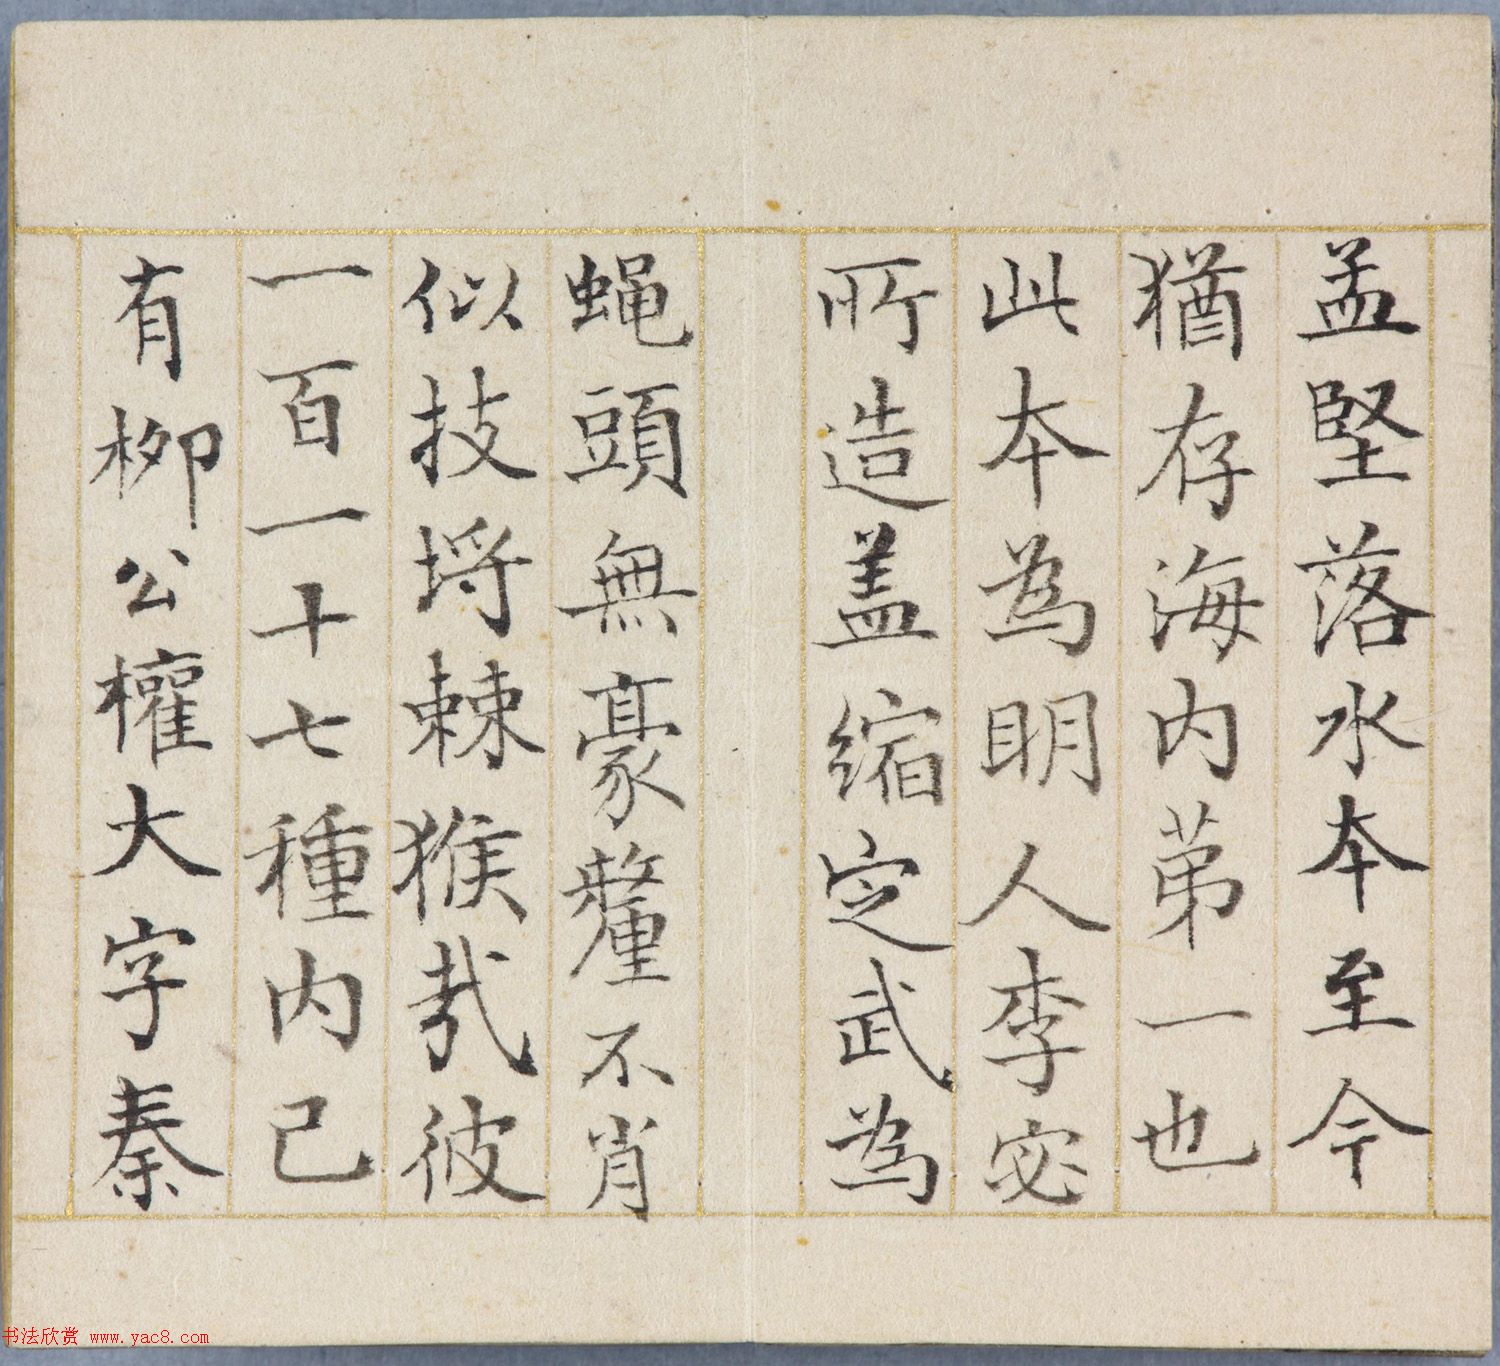 孟堅落水本至今
猶存海内苐一也
此本為明人李宓
所造盖縮定武為
蝇頭無豪釐不肖
似技埒棘猴㢤彼
一百一十七種内已
有栁公權大字秦
书法欣赏 www.yac8.com